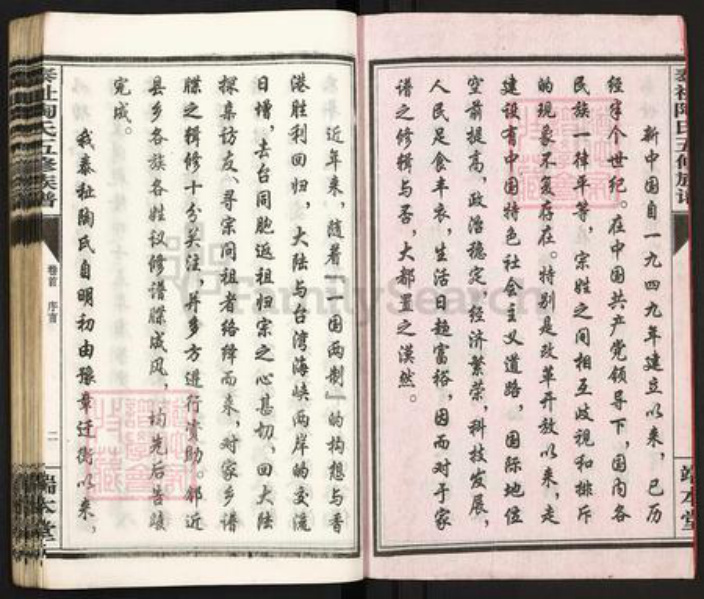 新中国自一九四九年建立以来，已历
经半个世纪。在中国共产党领导下，国内各
民族一律平等，宗姓之间相互歧视和排斥
的现象不复存在。特别是改革开放以来，走
建设有中国特色社会主义道路，国际地位
空前提高，政治稳定，经济繁荣，科技发展，
人民足食丰衣，生活日趋富裕，因而对于家
谱之修辑与否，大都置之漠然。
近年来，随着「一国两制」的构想与香
港胜利回归，大陆与台湾海峡两岸的交流
日增，去台同胞返祖归宗之心甚切，回大陆
探亲访友、寻宗问祖者络绎而来，对家乡谱
牒之辑修十分关注，并多方进行资助。邻近
县乡各族各姓议修谱牒成风，均先后告竣
完成。
我泰祉陶氏自明初由豫章迁衡以来，
泰祉陶氏五修族谱
卷首 序言
二
端本堂
泰祉陶氏五修族谱
端本堂
FamilySearch